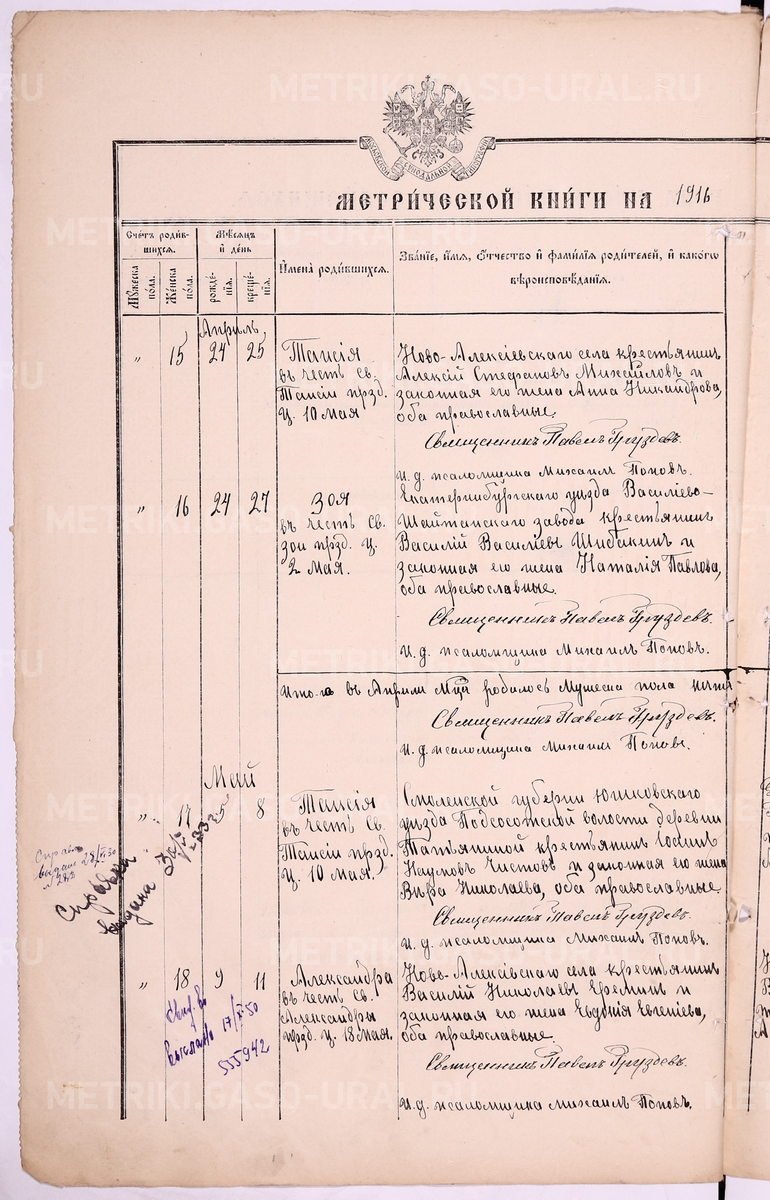 МЕТРИЧЕСКОЙ КНИГИ НА 1916
Счетъ родив-
шихся.
Мужеска
пола.
Женска
пола.
Мѣсяцъ
и день
рожде-
нія.
креще-
нія.
Имена родившихся.
Званіе, имя, отчество и фамилія родителей, и какого
вѣроисповѣданія.
Апрѣль
" 15 24 25
Таисія
въ честь св.
Таисіи прзд.
ц. 10 мая
Ново-Алексіевскаго села крестьянинъ
Алексій Стефановъ Михайловъ и
законная его жена Анна Никандрова,
оба православные.
Священникъ Павелъ Груздевъ.
И. д. псаломщика Михаилъ Поповъ.
" 16 24 27
Зоя
въ честь св.
Зои прзд. ц.
2 мая.
Екатеринбургскаго уѣзда Василіево-
Шайтанскаго завода крестьянинъ
Василій Василіевъ Шибакинъ и
законная его жена Наталія Павлова,
оба православные.
Священникъ Павелъ Груздевъ.
И. д. псаломщика Михаилъ Поповъ.
Итого въ Апрѣлѣ родилось мужеска пола
Священникъ Павелъ Груздевъ.
И. д. псаломщика Михаилъ Поповъ.
Май
" 17 8
Таисія
въ честь св.
Таисіи прзд.
ц. 10 мая.
Смоленской губерніи Юхновскаго
уѣзда Подсосотской волости деревни
Татьяниной крестьянинъ Іоаннъ
Наумовъ Чистовъ и законная его жена
Вѣра Николаева, оба православные.
Священникъ Павелъ Груздевъ.
И. д. псаломщика Михаилъ Поповъ.
Справка
выдана
" 18 9 11
Александра
въ честь св.
Александры
прзд. ц. 18 мая.
Ново-Алексіевскаго села крестьянинъ
Василій Николаевъ Ереминъ и
законная его жена Евдокія Евгеніева,
оба православные.
Священникъ Павелъ Груздевъ.
И. д. псаломщика Михаилъ Поповъ.
Выслано 17/V-50
555942
METRIKI.GASO-URAL.RU